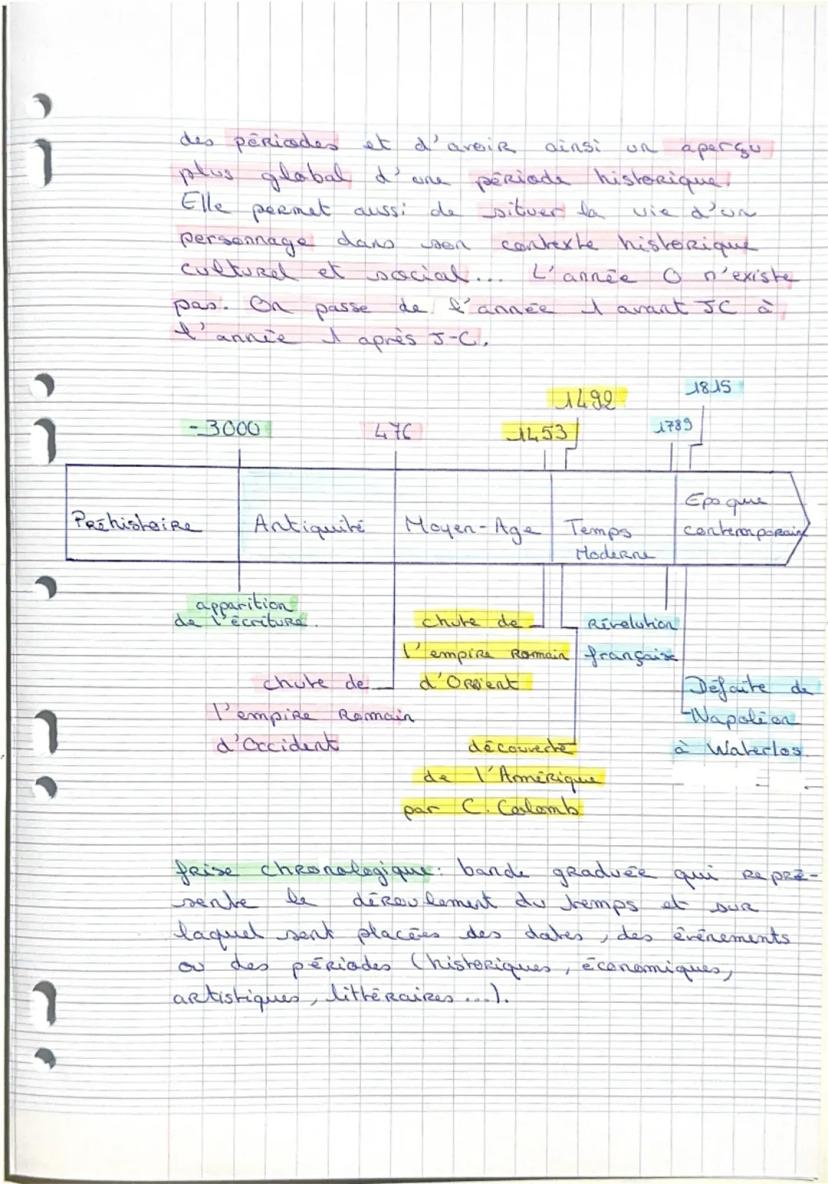 des périodes et d'avoir ainsi un aperçu
plus global d'une période historique.
Elle permet aussi de situer la vie d'un
personnage dans son contexte historique
culturel et social... L'année 0 n'existe
pas. On passe de l'année 1 avant JC à
l'année 1 après J-C.
1815
1492
-3000 476 1453 1789
Préhistoire Antiquité Moyen-Age Temps Moderne Epoque contemporaine
apparition
de l'écriture.
chute de
l'empire Romain
d'Occident
chute de
l'empire Romain
d'Orient
découverte
de l'Amérique
par C. Colomb
Révolution
française
Défaite de
Napoléon
à Waterloo
frise chronologique : bande graduée qui repré-
sente le déroulement du temps et sur
laquel sont placées des dates, des événements
ou des périodes (historiques, économiques,
artistiques, littéraires ...).